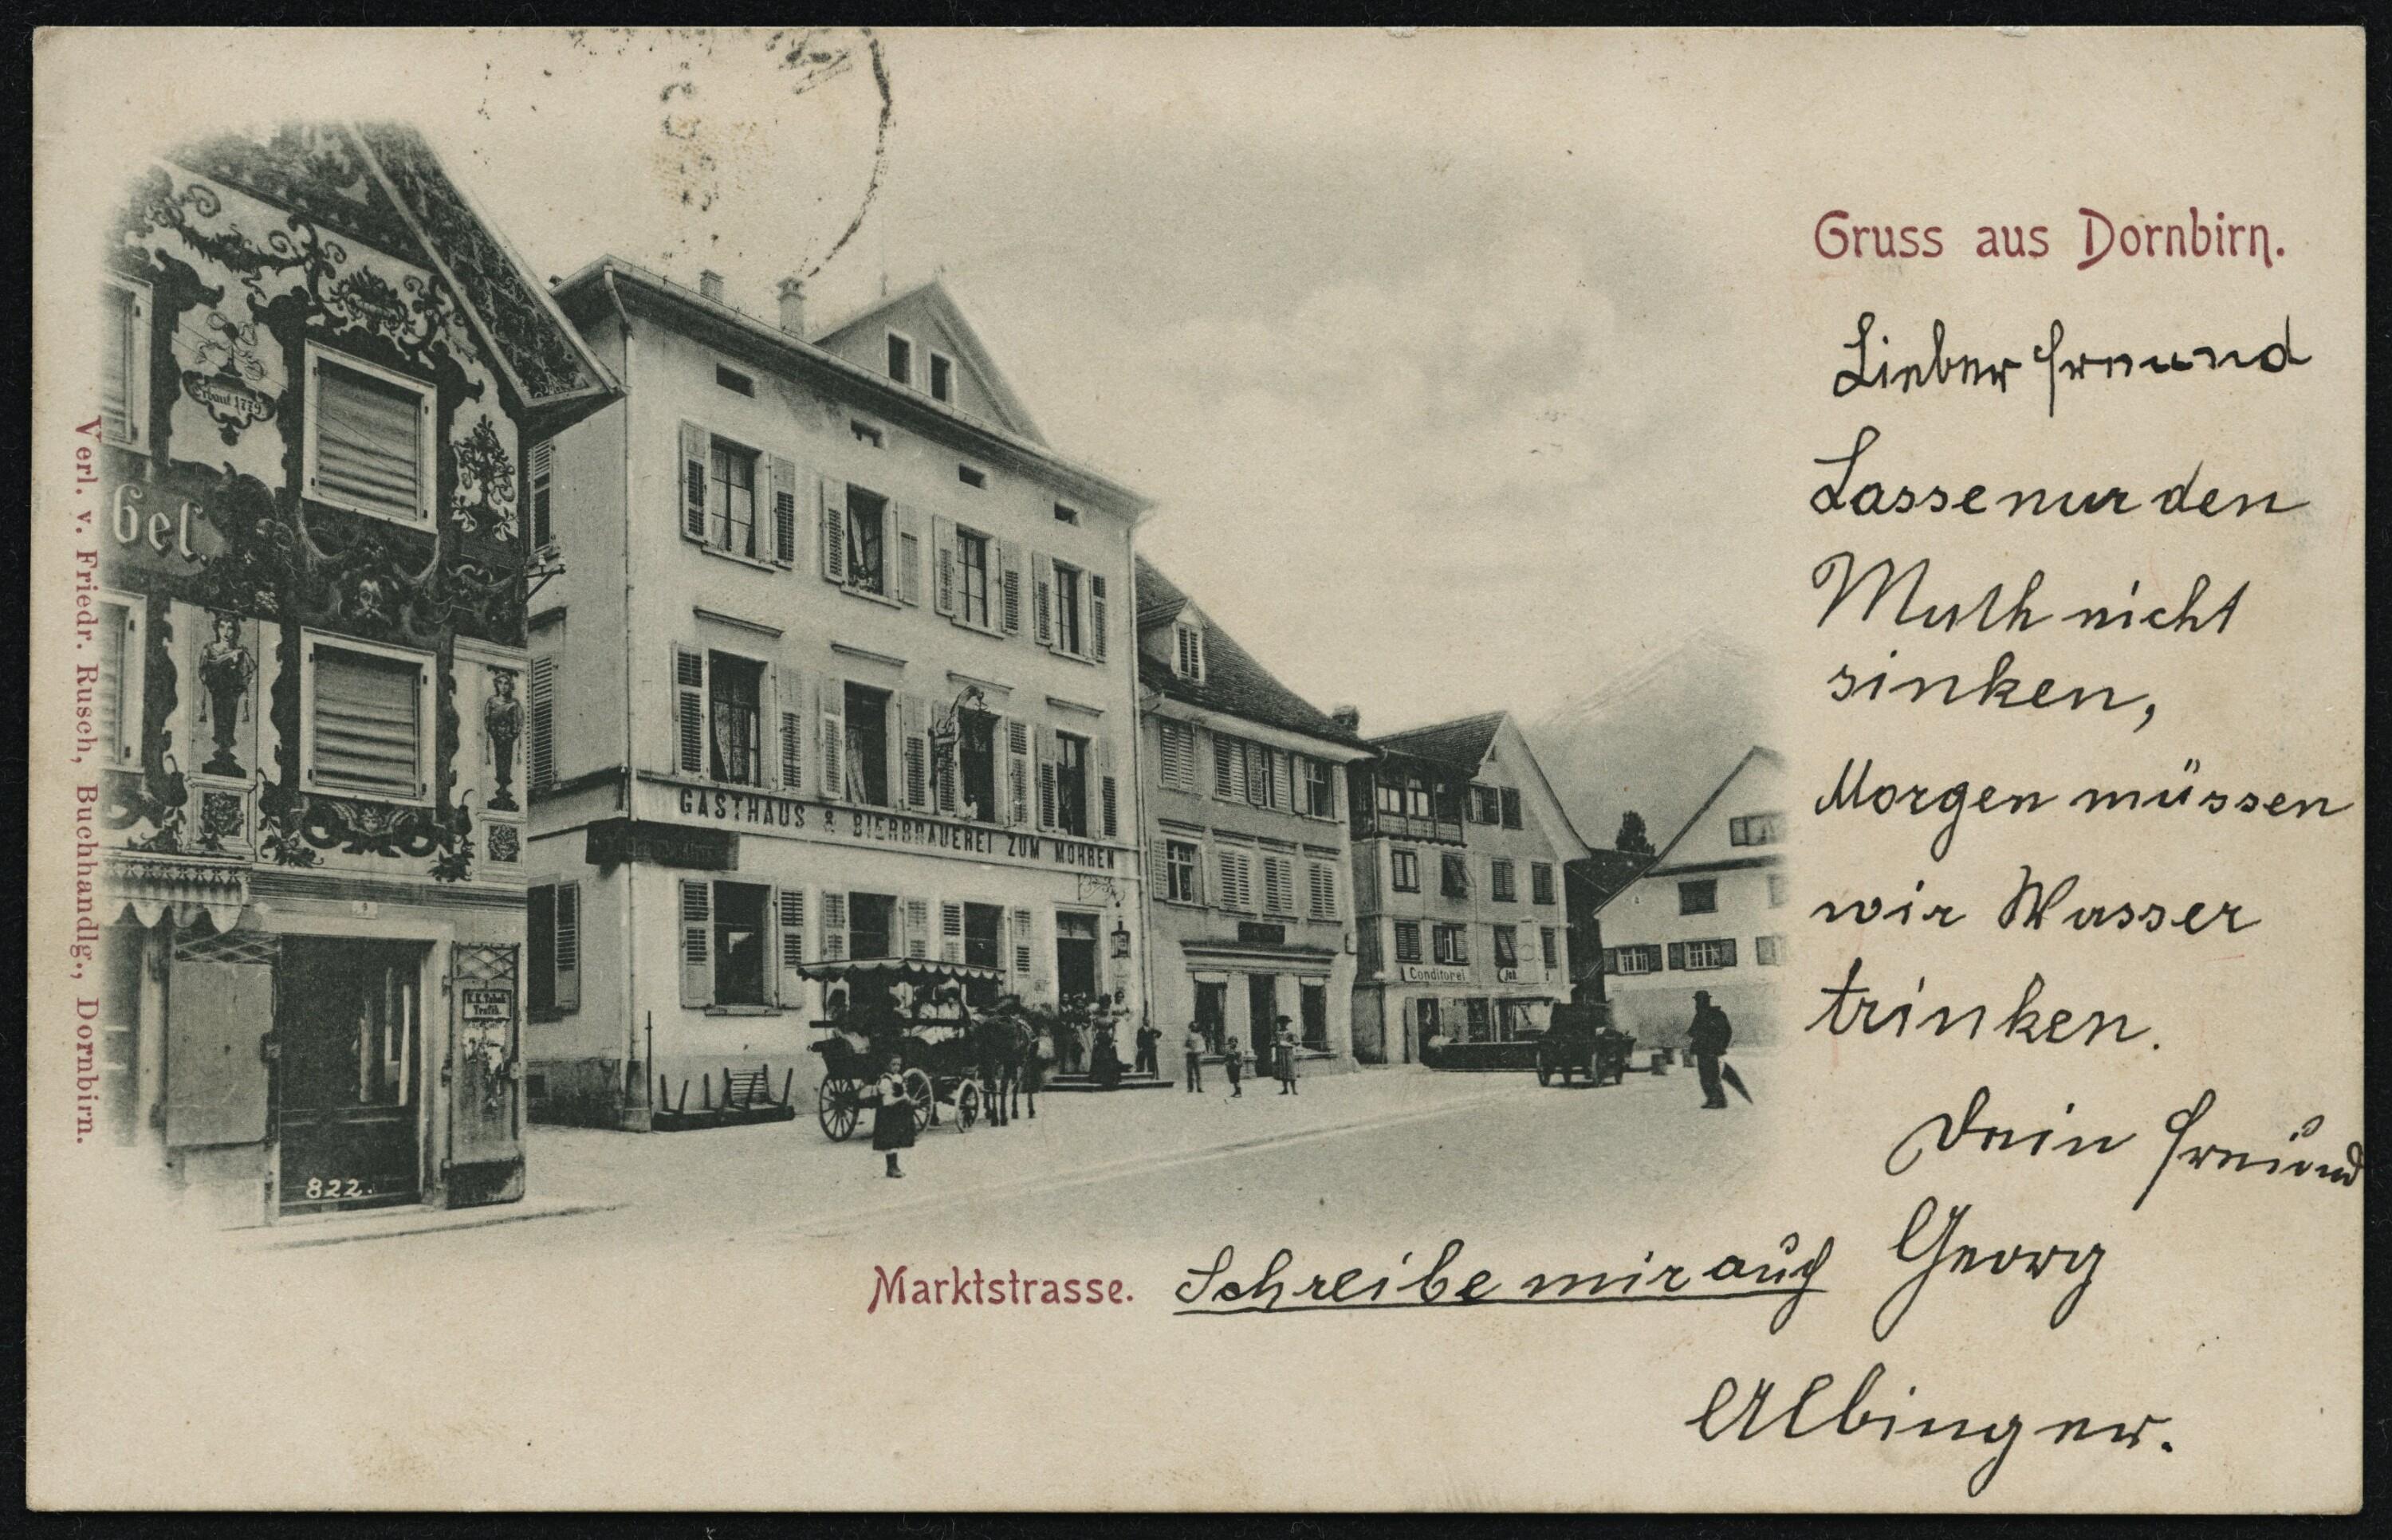 Gruss aus Dornbirn.
Lieber Freund
Lasse nur den
Muth nicht
sinken,
Morgen müssen
wir Wasser
trinken.
Dein Freund
Georg
Albinger.
Schreibe mir auch
Marktstrasse.
Verl. v. Friedr. Rusch, Buchhandlg., Dornbirn.
Erbaut 1779
bel.
GASTHAUS & BIERBRAUEREI ZUM MOHREN
Conditorei
K.K. Tabak
Trafik.
822.